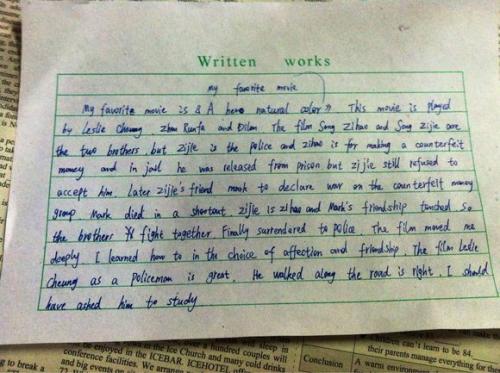 Written works
my favorite movie
My favorite movie is & A hero natural color》 This movie is played
by Leslie Cheung Zhou Runfa and Dilon The film Song Zihao and Song zijie are
the two brothers but zijie is the police and zihao is for making a counterfeit
money and in jail he was released from prison but zijie still refused to
accept him. Later zijie's friend mark to declare war on the counterfeit money
group Mark died in a shortout. zijie is zihao and Mark's friendship touched so
the brothers fight together Finally surrendered to police. The film moved me
deeply I learned how to in the choice of affection and friendship. The film Leslie
Cheung as a Policeman is great. He walked along the road is right. I should
have ashed him to study
to break a
be enjoyed in the ICEBAR. ICEHOTEL
conference facilities. We arrange
and big events on
the Ice Church and many cold drinks
hundred couples will
and sleep in
Conclusion
children can't learn to be 84.
their parents manage everything for
A warm environment